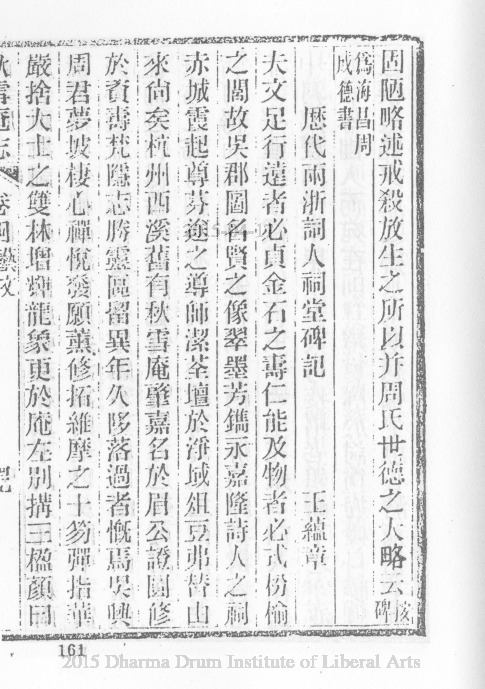 固陋略述戒殺放生之所以并周氏世德之大略云核碑
為海昌周
成德書
歷代兩浙詞人祠堂碑記 王蘊章
夫文足行遠者必貞金石之壽仁能及物者必式枌榆
之閭故吳郡圖名賢之像翠墨芳鐫永嘉隆詩人之祠
赤城霞起尊芬逾之導師潔荃壇於淨域俎豆弗替由
來尚矣杭州西溪舊有秋雪庵肇嘉名於眉公證圓修
於賁壽梵隱志勝靈區留異年久陊落過者慨焉吳興
周君夢坡棲心禪悅發願薰修拓維摩之十笏彈指華
嚴捨大士之雙林增輝龍象更於庵左別搆三楹顏曰
秋雪庵志 卷四藝文 記
161
2015 Dharma Drum Institute of Liberal Arts